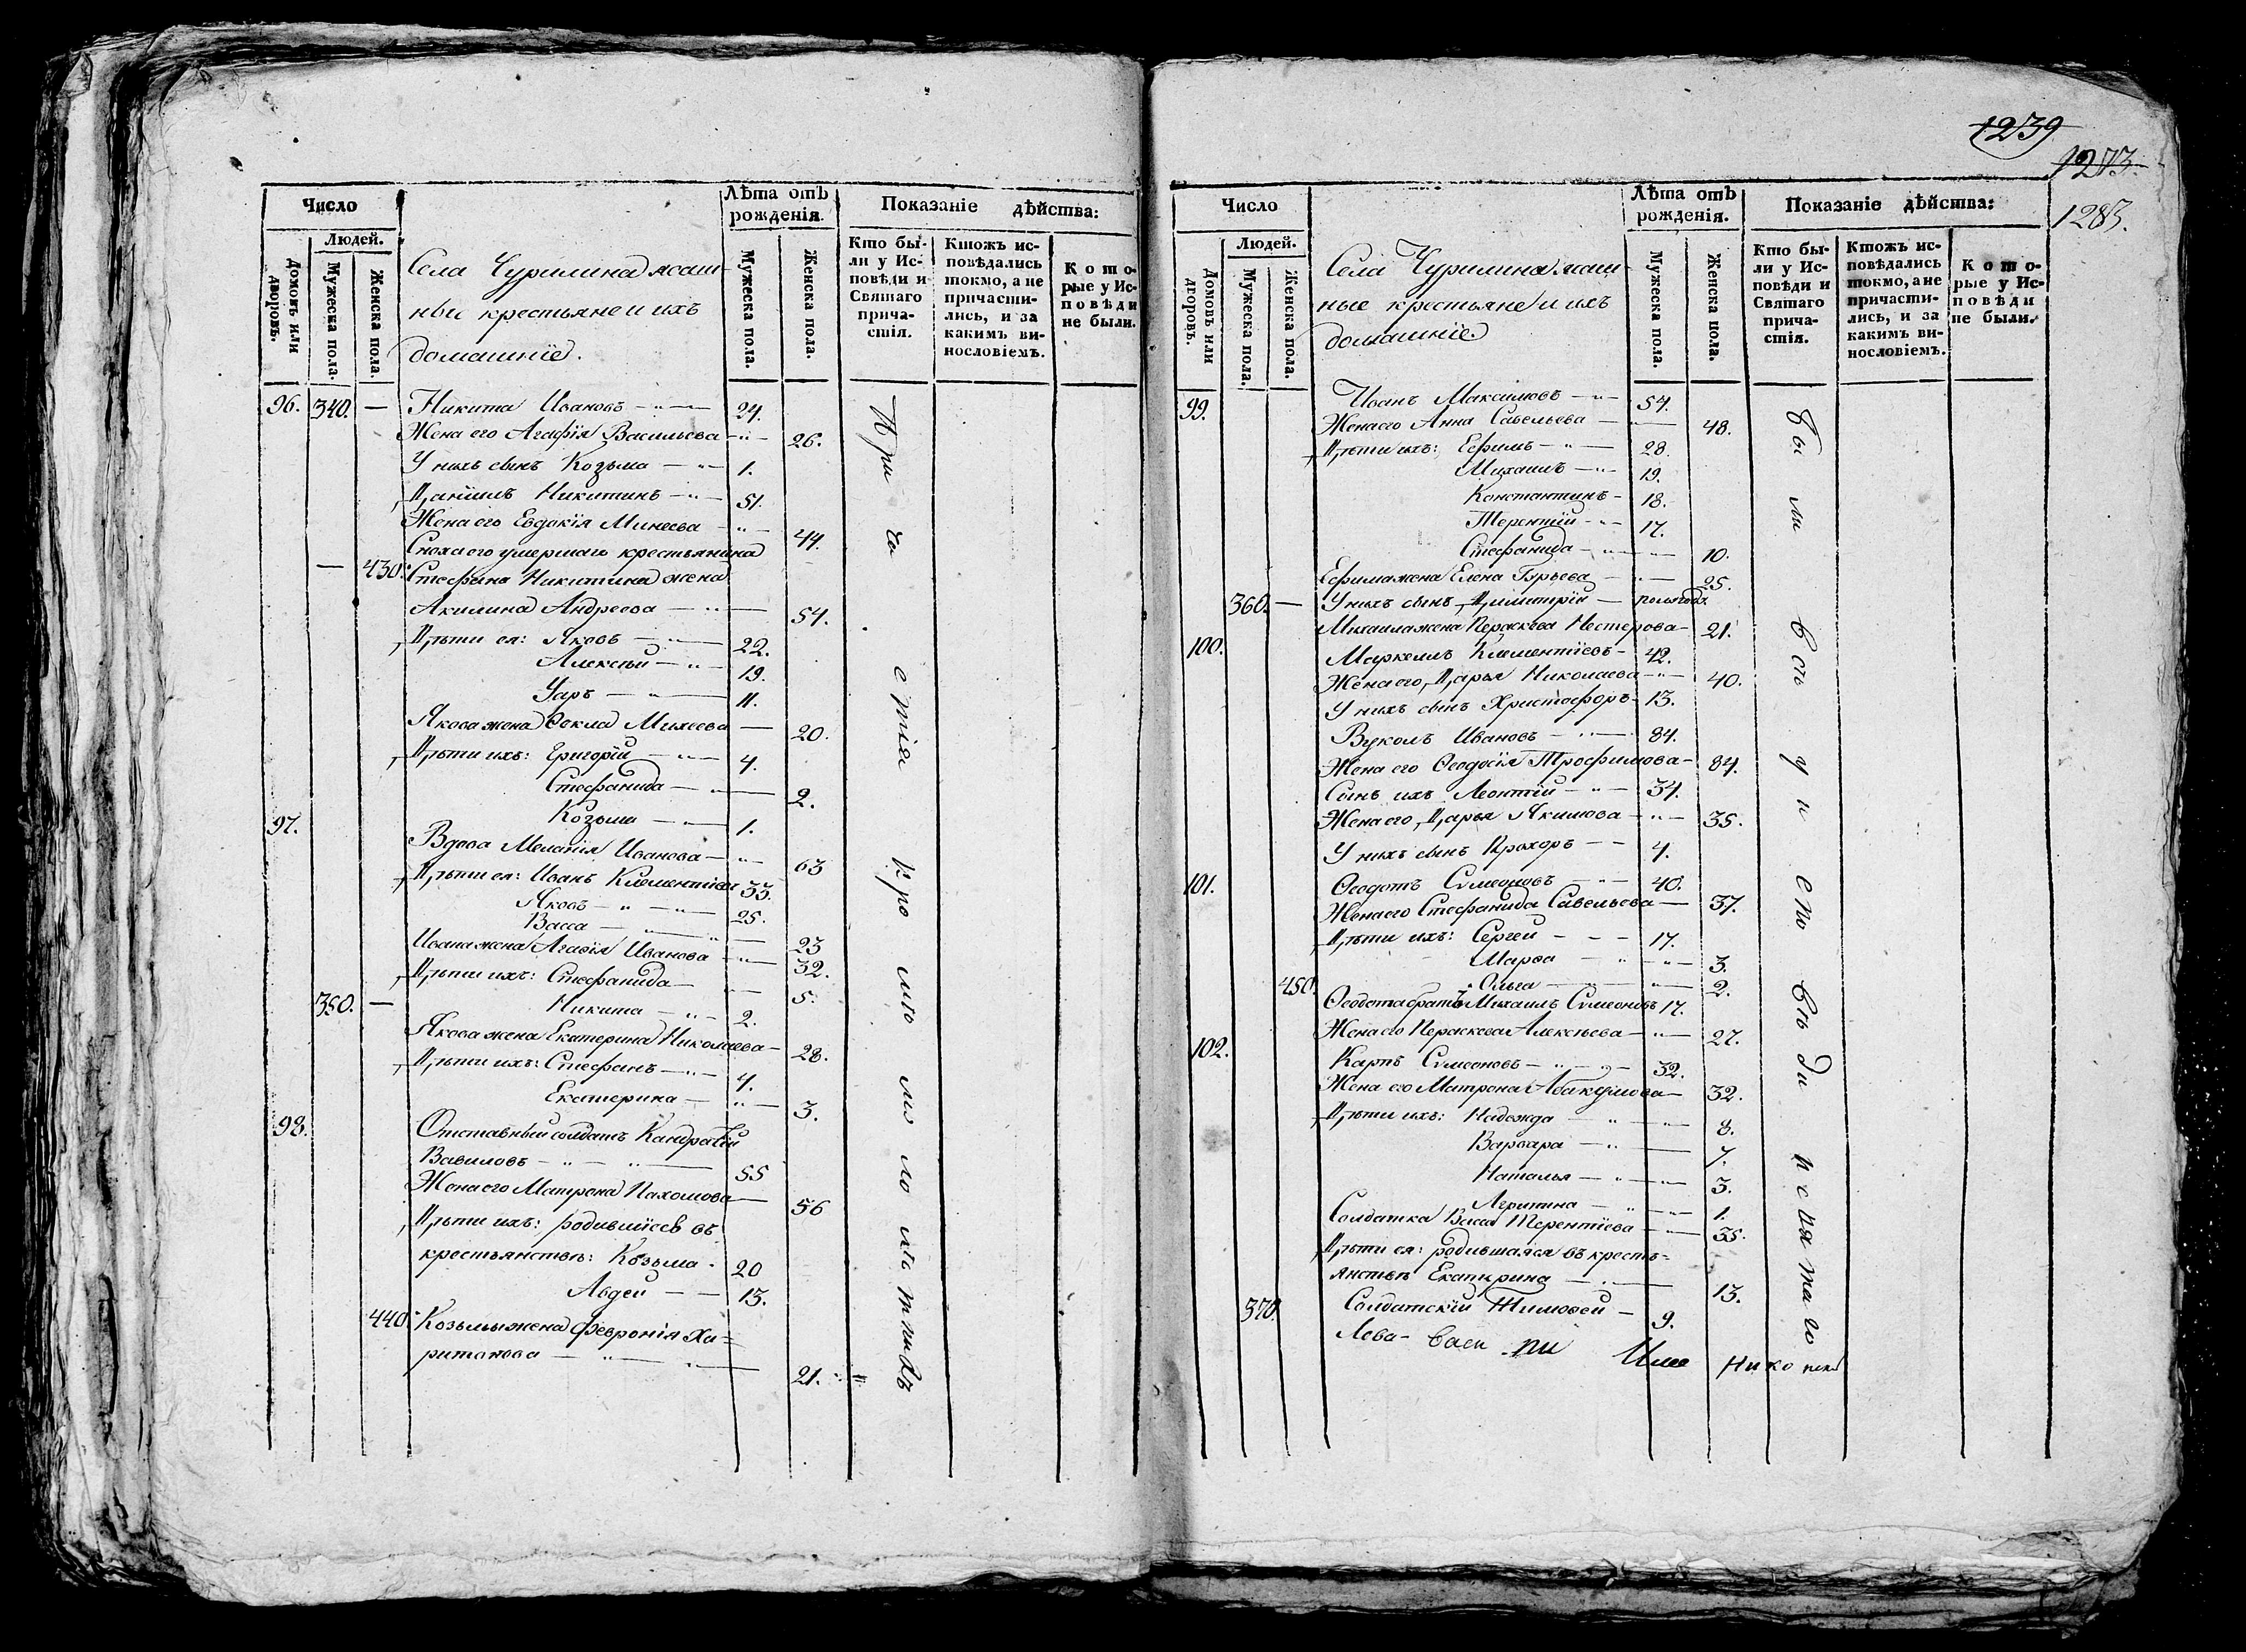 Число
Людей.
Домовъ или дворовъ.
Мужеска пола.
Женска пола.
Села Чурилина ясаш-
ныи крестьяне и ихъ
домашніе.
Лѣта отъ рожденія.
Мужеска пола.
Женска пола.
Показаніе дѣйства:
Кто бы-
ли у Ис-
повѣди и
Святаго
прича-
стія.
Ктожъ ис-
повѣдались
токмо, а не
причасти-
лись, и за
какимъ ви-
нословіемъ.
Кото-
рые у Ис-
повѣди
не были.
96. 340. — Никита Ивановъ 24.
Жена его Агафія Васильева 26.
У нихъ сынъ Козьма 1.
Даніилъ Никитинъ 51.
Жена его Евдокія Минеева 44.
Сноха его умершаго крестьянина
— 430. Стефана Никитина жена
Акилина Андреева 54.
Дѣти ея: Яковъ 22.
Алексѣй 19.
Уаръ 11.
Якова жена Ѳекла Михеева 20.
Дѣти ихъ: Григорій 4.
Стефанида 2.
Козьма 1.
97. Вдова Меланія Иванова 63
Дѣти ея: Иванъ Климентіевъ 33.
Яковъ 25.
Васса 23
Ивана жена Агафія Иванова 32.
Дѣти ихъ: Стефанида 5.
350. — Никита 2.
Якова жена Екатерина Николаева 28.
Дѣти ихъ: Стефанъ 4.
Екатерина 3.
98. Отставный солдатъ Кандратій
Вавиловъ 55
Жена его Матрона Пахомова 56
Дѣти ихъ: родившіеся въ
крестьянствѣ: Козьма 20
Авдей 13.
440. Козьмы жена Февронія Ха-
ритонова 21.
При ча стія кро мѣ ма ло лѣ тнихъ
1239
1273.
1283.
Число
Людей.
Домовъ или дворовъ.
Мужеска пола.
Женска пола.
Села Чурилина ясаш-
ные крестьяне и ихъ
домашніе
Лѣта отъ рожденія.
Мужеска пола.
Женска пола.
Показаніе дѣйства:
Кто бы-
ли у Ис-
повѣди и
Святаго
прича-
стія.
Ктожъ ис-
повѣдались
токмо, а не
причасти-
лись, и за
какимъ ви-
нословіемъ.
Кото-
рые у Ис-
повѣди
не были.
99. Иванъ Максимовъ 54.
Жена его Анна Савельева 48.
Дѣти ихъ: Ефимъ 28.
Михаилъ 19.
Константинъ 18.
Терентій 17.
Стефанида 10.
Ефима жена Елена Гурьева 25.
360. — У нихъ сынъ Димитрій полъгода
Михаила жена Параскева Нестерова 21.
100. Маркеллъ Климентіевъ 42.
Жена его Дарья Николаева 40.
У нихъ сынъ Христофоръ 13.
Вуколъ Ивановъ 84.
Жена его Ѳеодосія Трофимова 84.
Сынъ ихъ Леонтій 34.
Жена его Дарья Якимова 35.
У нихъ сынъ Прохоръ 4.
101. Ѳеодотъ Сѵмеоновъ 40.
Жена его Стефанида Савельева 37.
Дѣти ихъ: Сергей 17.
Марѳа 3.
450. Ольга 2.
Ѳеодота братъ Михаилъ Сѵмеоновъ 17.
Жена его Параскева Алексѣева 27.
102. Карпъ Сѵмеоновъ 32.
Жена его Матрона Абакумова 32.
Дѣти ихъ: Надежда 8.
Варвара 7.
Наталья 3.
Агрипина 1.
Солдатка Васса Терентіева 35.
Дѣти ея: родившаяся въ кресть-
янствѣ Екатирина 13.
370. Солдатскій Тимоѳей 9.
бы ли всѣ у и спо вѣ ди и свя та го